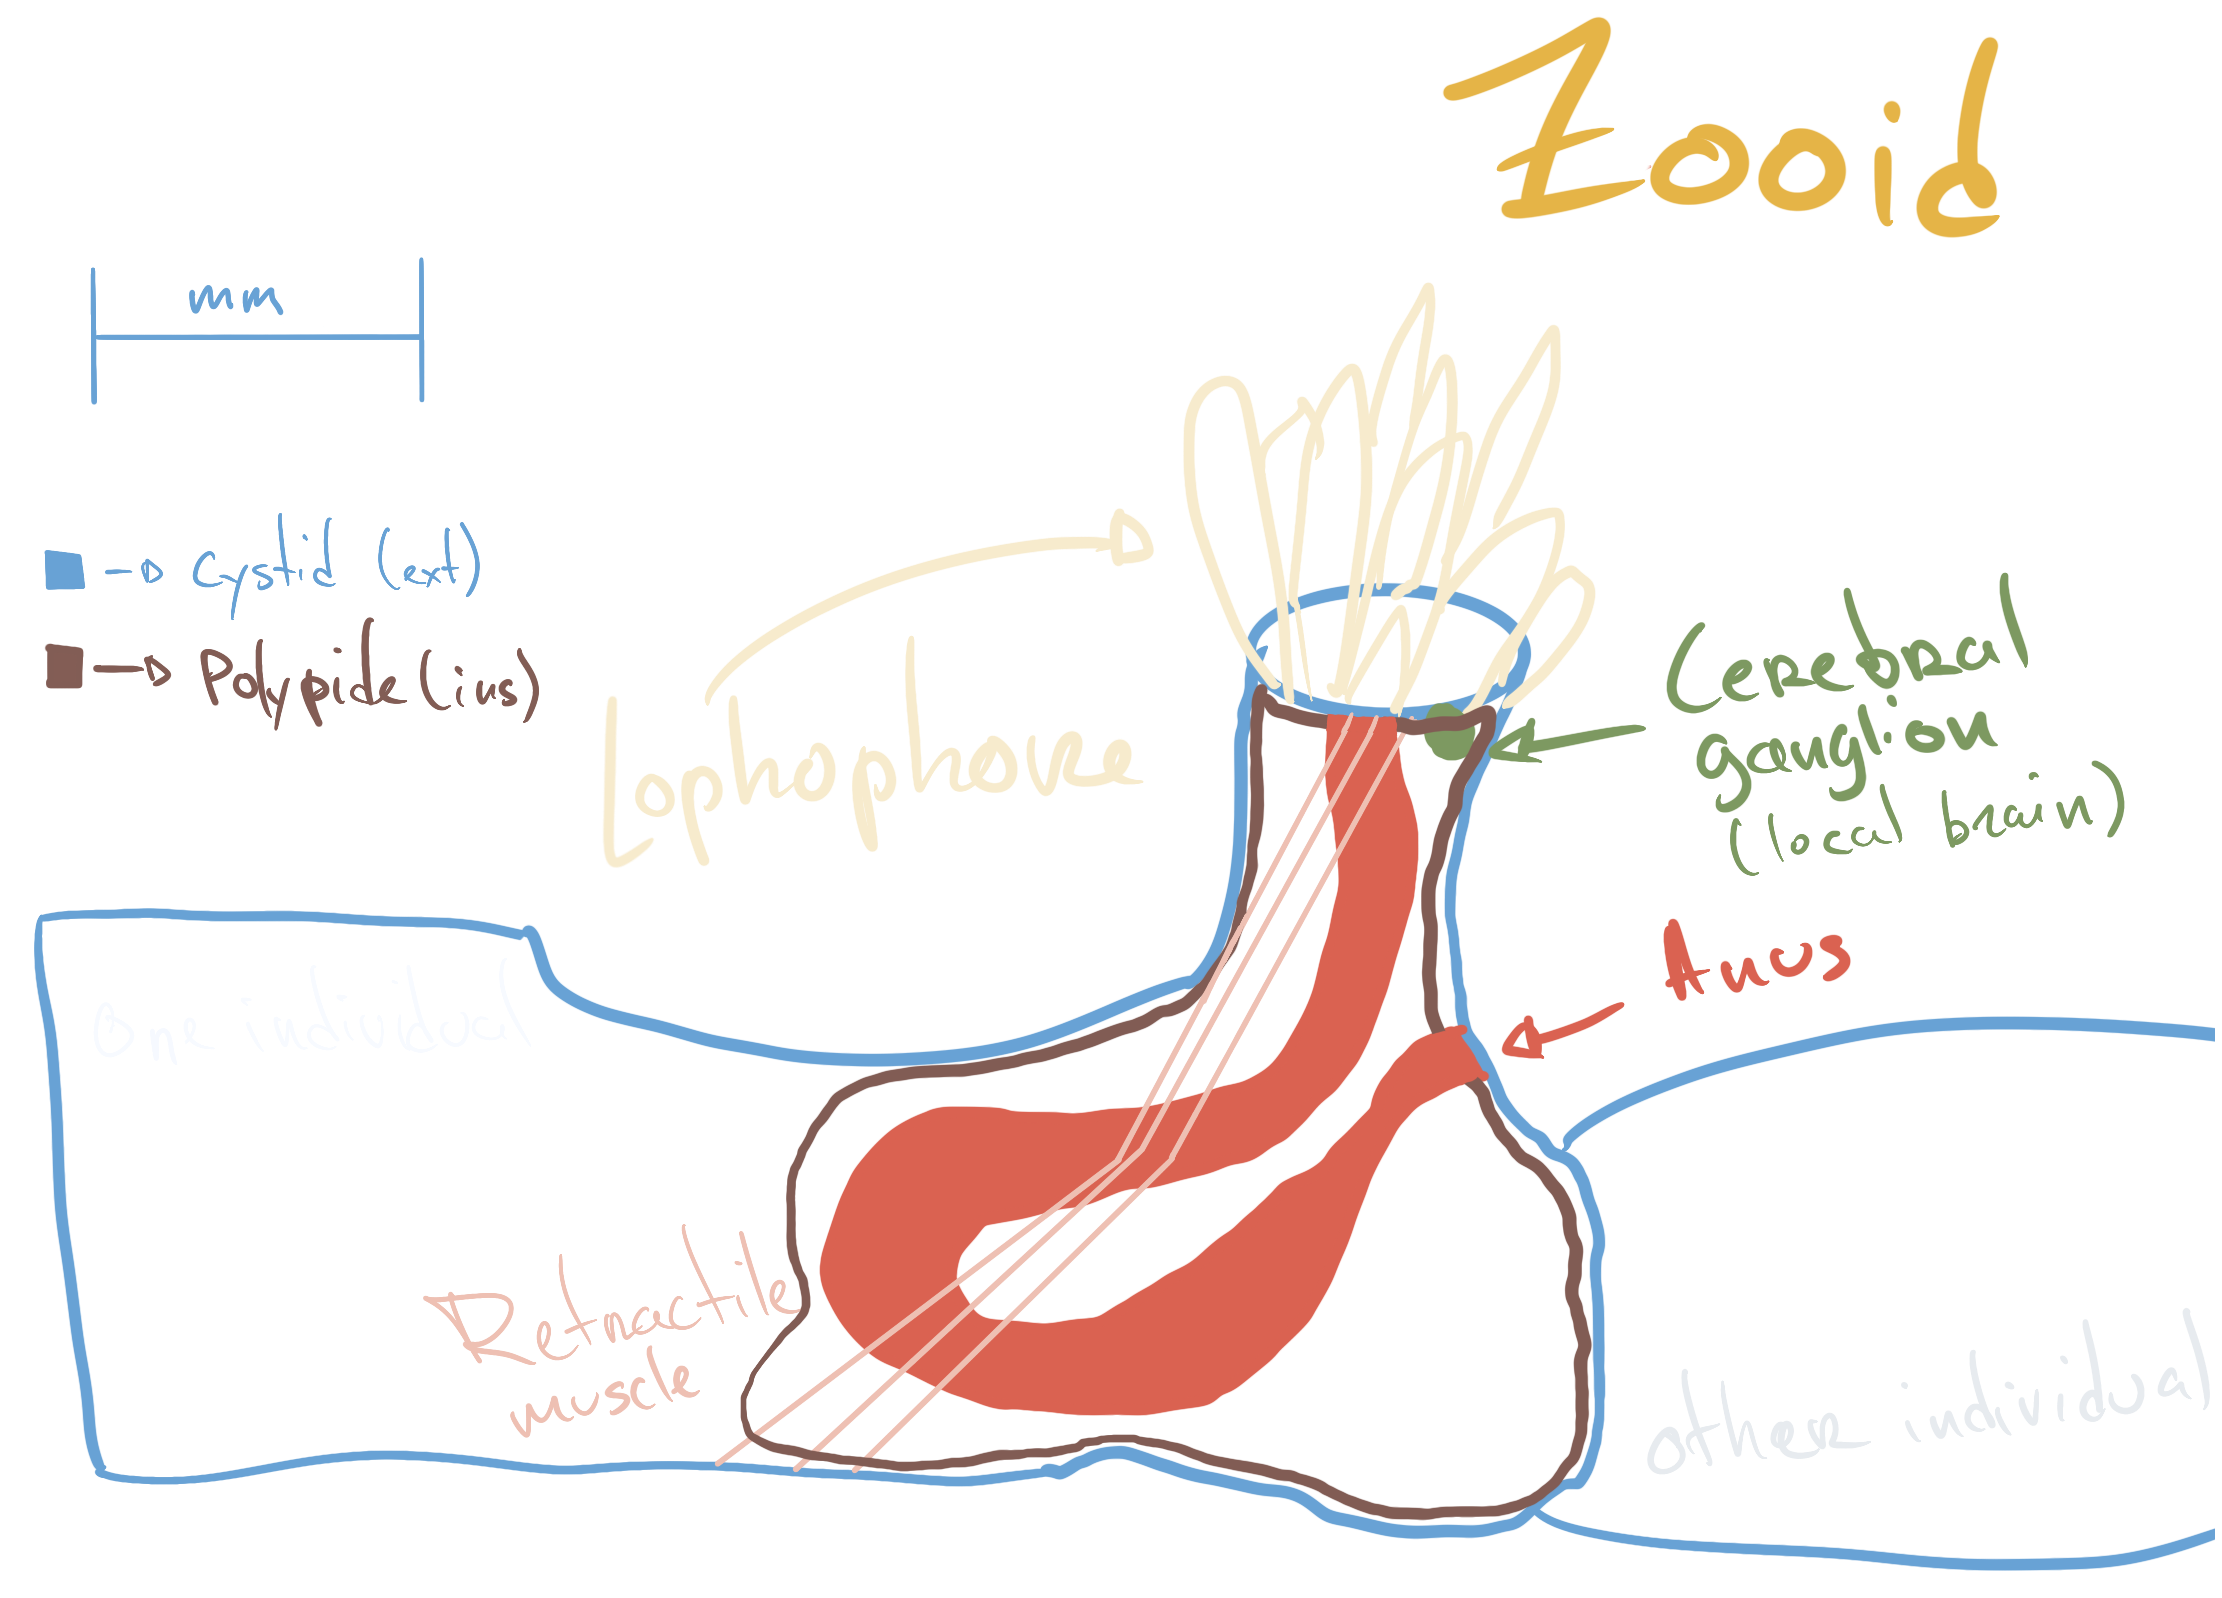 Zooid
mm
Cystid (ext)
Polypide (ins)
Lophophore
Cerebral
ganglion
(local brain)
Anus
One individual
Retractile
muscle
other individual